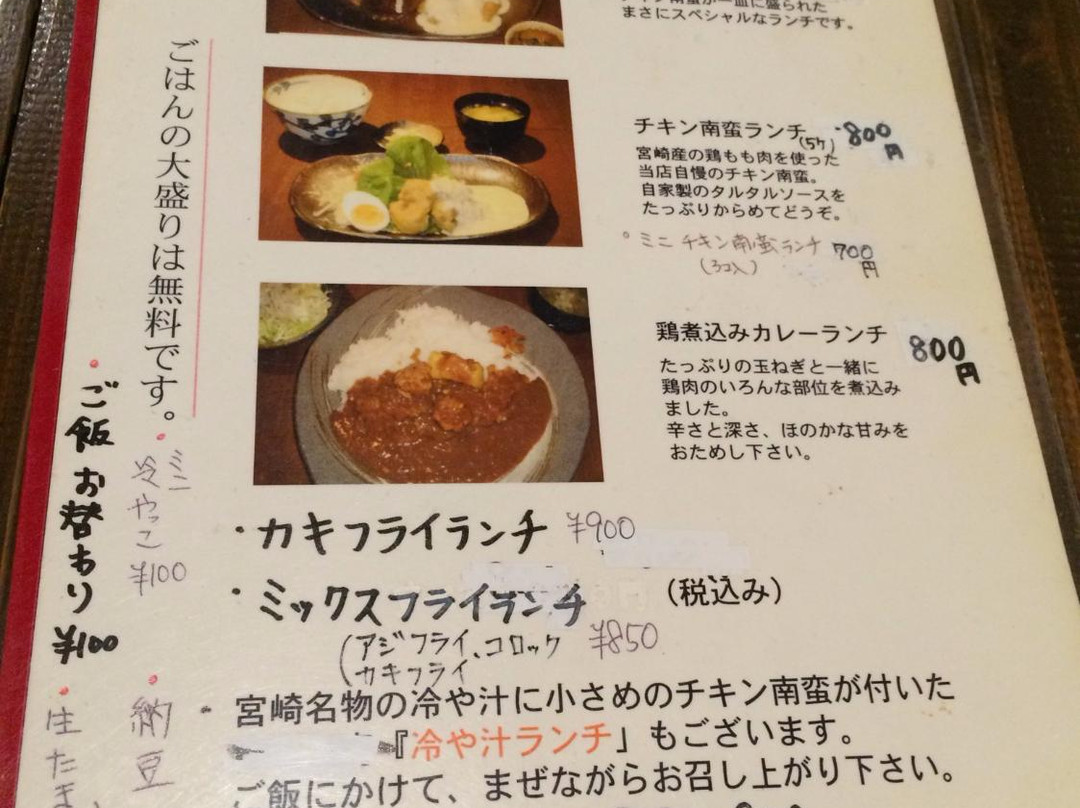 まさにスペシャルなランチです。
チキン南蛮ランチ 800円
(5ケ)
宮崎産の鶏もも肉を使った
当店自慢のチキン南蛮。
自家製のタルタルソースを
たっぷりからめてどうぞ。
ミニチキン南蛮ランチ 700円
(3コ入)
鶏煮込みカレーランチ 800円
たっぷりの玉ねぎと一緒に
鶏肉のいろんな部位を煮込み
ました。
辛さと深さ、ほのかな甘みを
おためし下さい。
・カキフライランチ ¥900
・ミックスフライランチ (税込み)
(アジフライ、コロッケ ¥850
カキフライ
・宮崎名物の冷や汁に小さめのチキン南蛮が付いた
『冷や汁ランチ」もございます。
ご飯にかけて、まぜながらお召し上がり下さい。
ごはんの大盛りは無料です。
・ミニ冷やっこ ¥100
・納豆
・ご飯お替わり ¥100
・生たま